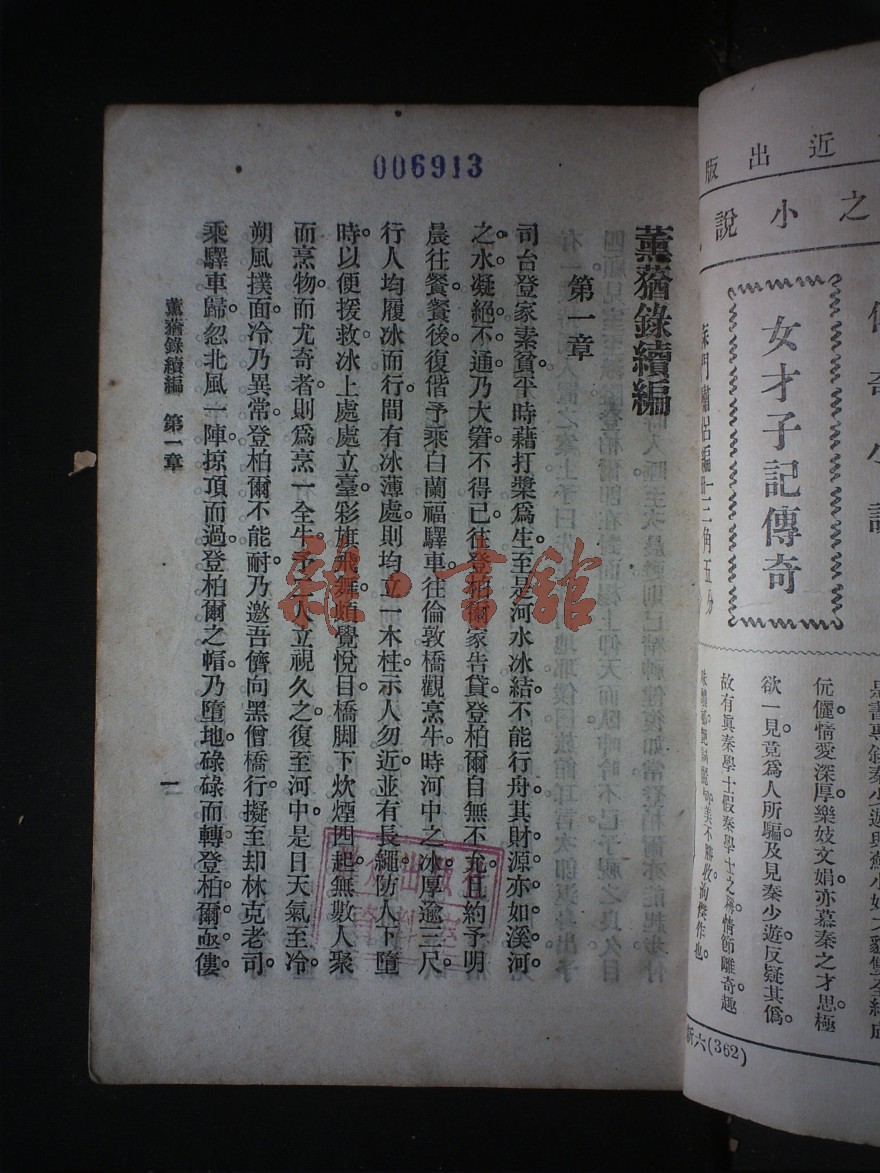 006913
薰蕕錄續編
第一章
司台登家素貧。平時藉打槳爲生。至是河水冰結。不能行舟。其財源亦如溪河
之水。凝絕不通。乃大窘。不得已。往登柏爾家告貸。登柏爾自無不允。且約予明
晨往餐。餐後。復偕予乘白蘭福驛車。往倫敦橋觀烹牛。時河中之冰厚逾三尺。
行人均履冰而行。間有冰薄處。則均立一木柱。示人勿近。並有長繩。防人下墮
時。以便援救。冰上處處立臺。彩旗飛舞。頗覺悅目。橋脚下炊煙四起。無數人聚
而烹物。而尤奇者。則爲烹一全牛。予二人立視久之。復至河中。是日天氣至冷。
朔風撲面。冷乃異常。登柏爾不能耐。乃邀吾儕向黑僧橋行。擬至却林克老司。
乘驛車歸。忽北風一陣。掠頂而過。登柏爾之帽。乃墮地碌碌而轉。登柏爾亟僂
薰蕕錄續編 第一章
一
雜·書館
近出版
之小說
女才子記傳奇
三角五分
伉儷情愛深厚。樂妓文娟亦慕秦之才思極
欲一見。竟爲人所騙。及見秦少遊。反疑其僞。
故有眞秦學士假秦學士之稱。情節離奇趣
美不勝收。洵傑作也。
新六(362)